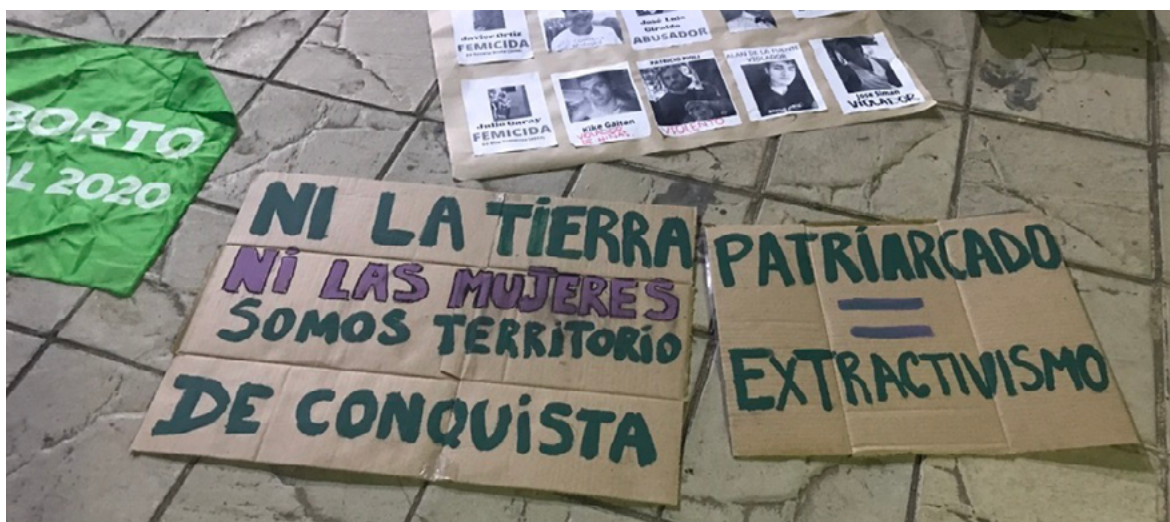 BORTO
L 2020
Javier Ortiz
FEMICIDA
José Luis
ABUSADOR
Julio Garay
FEMICIDA
Kike Gaitan
VIOLADOR
DE NIÑAS.
VIOLENTO
ALAN DE LA FUENTE
VIOLADOR
Jose Siman
VIOLADOR
NI LA TIERRA
NI LAS MUJERES
SOMOS TERRITORIO
DE CONQUISTA
PATRIARCADO
=
EXTRACTIVISMO